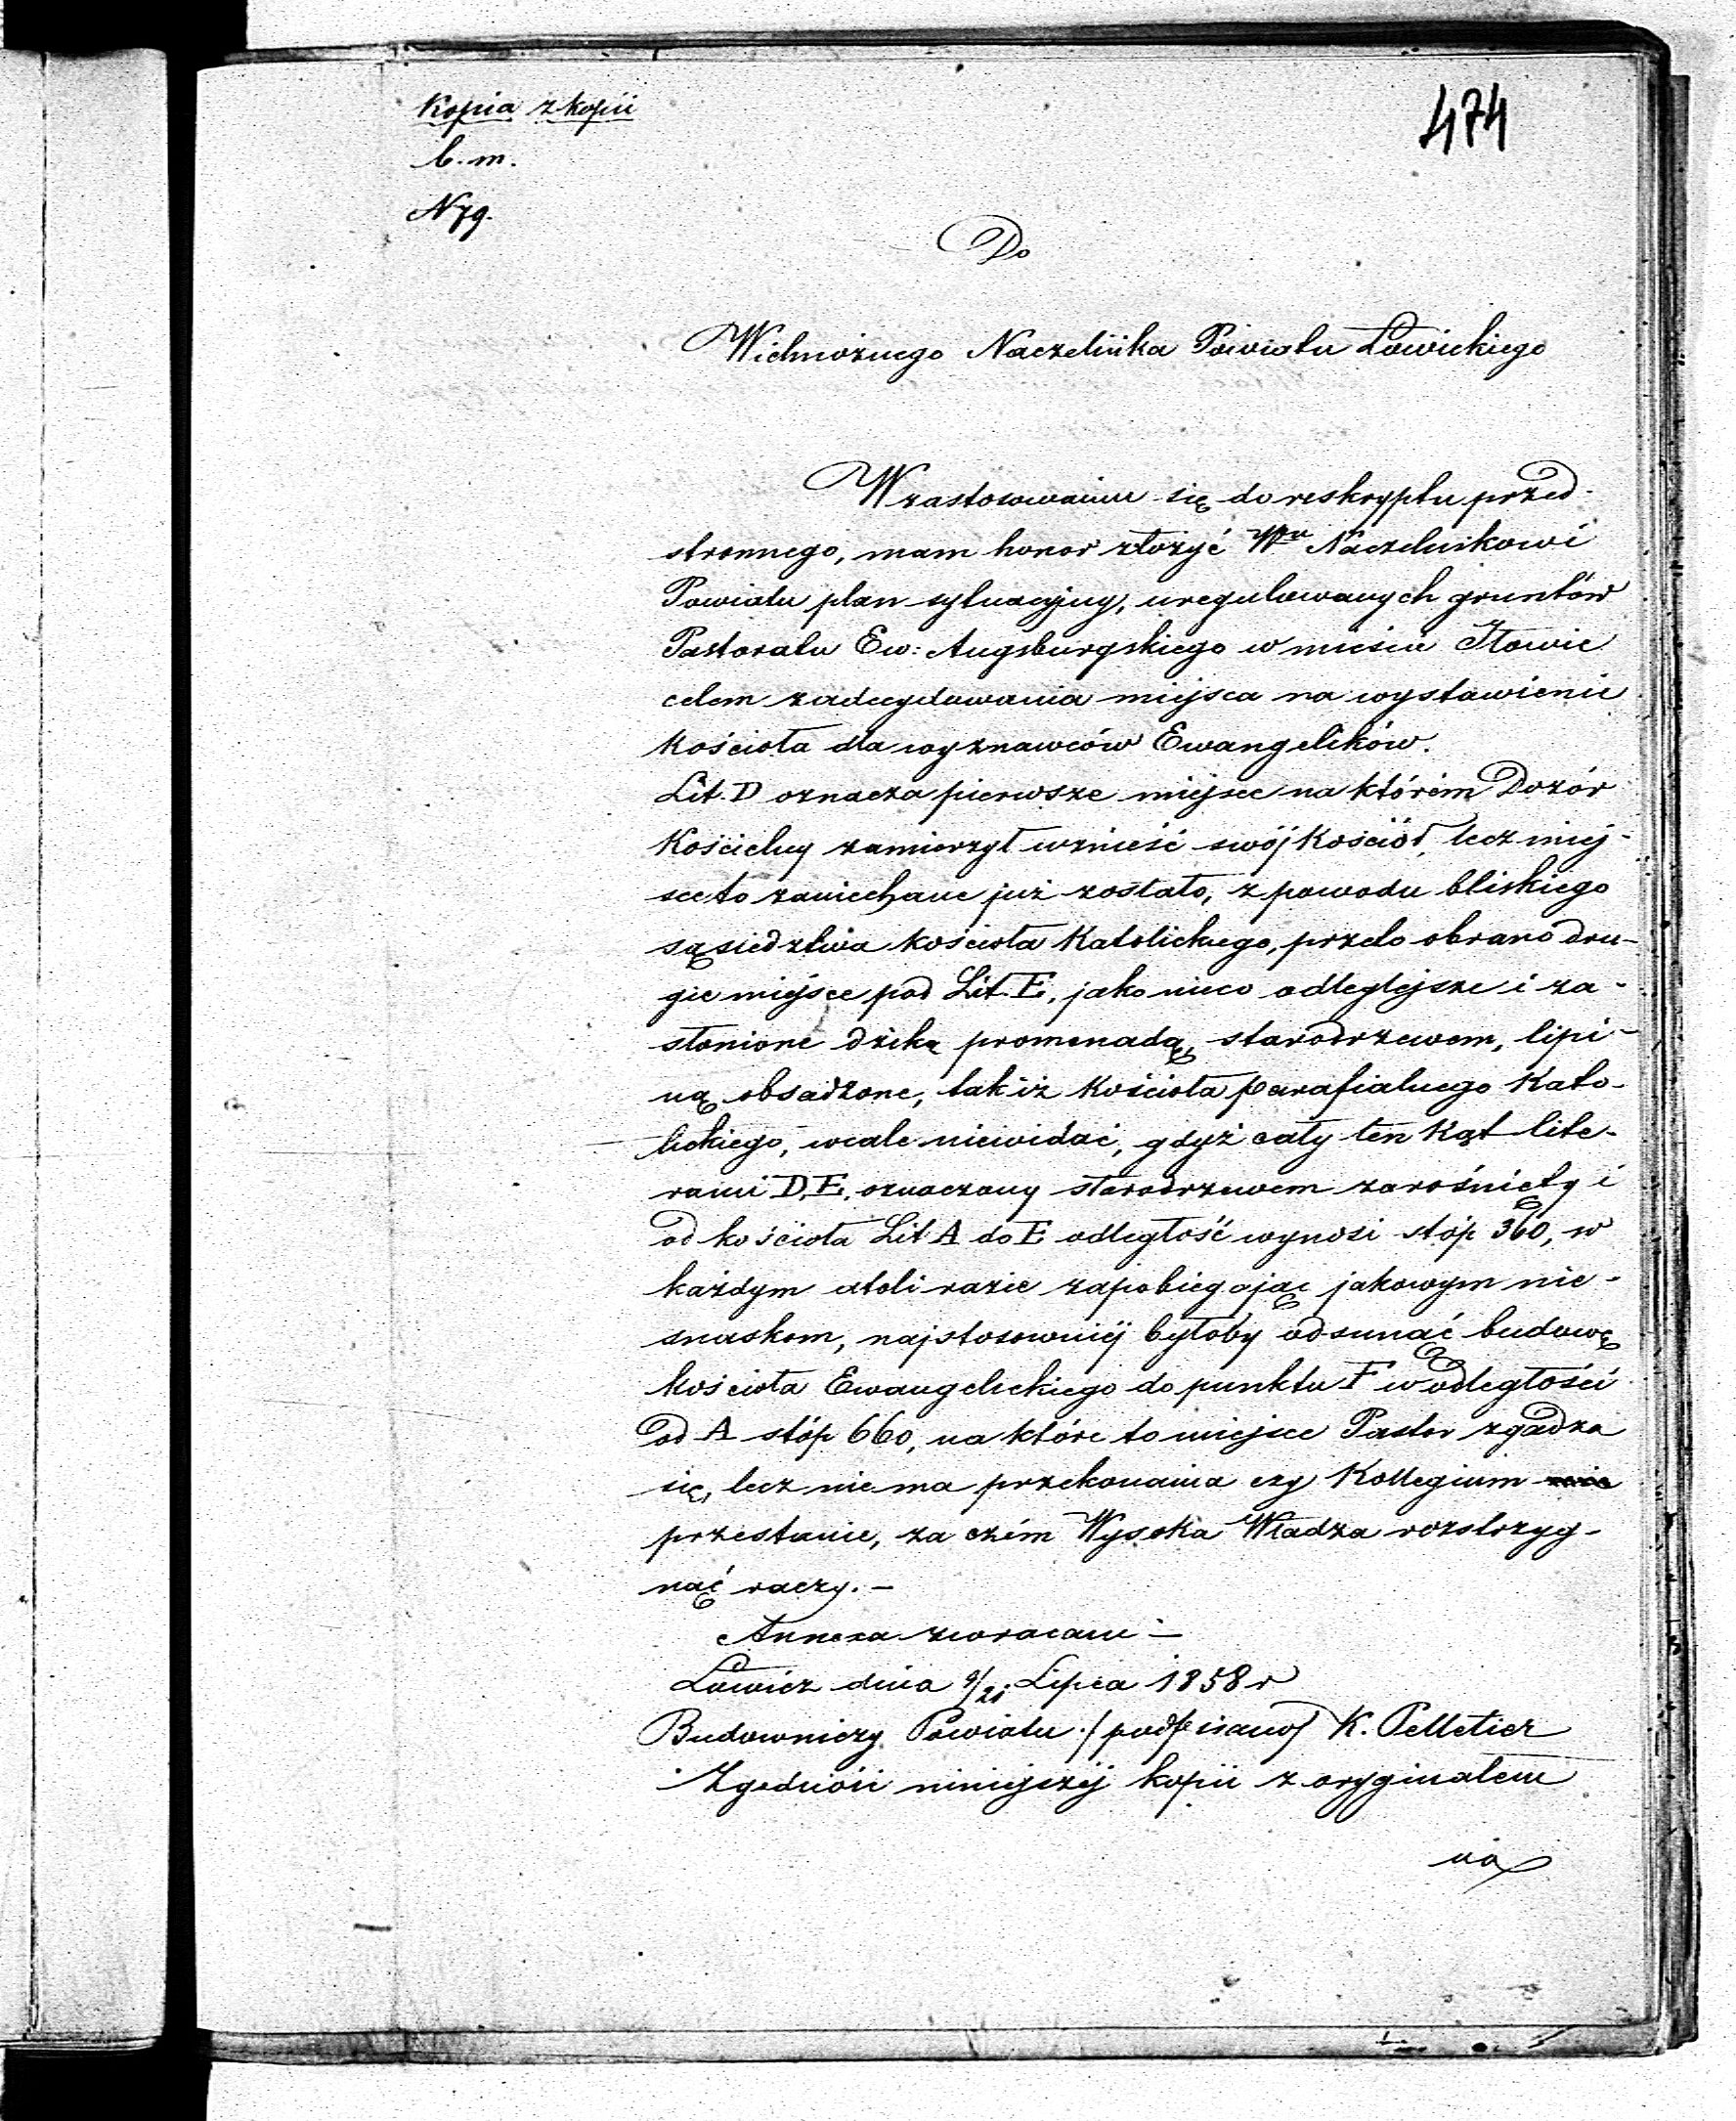 Kopia z kopii
474
b. m.
N 79.
Do
Wielmożnego Naczelnika Powiatu Łowickiego
W zastosowaniu się do reskryptu przed-
stronnego, mam honor złożyć Wmu Naczelnikowi
Powiatu plan sytuacyjny, uregulowanych gruntów
Pastoratu Ew: Augsburgskiego w mieście Iłowie
celem zadecydowania miejsca na wystawienie
kościoła dla wyznawców Ewangelików.
Lit. D oznacza pierwsze miejsce na którém Dozór
Kościelny zamierzył wznieść swój Kościół, lecz miej-
sce to zaniechane już zostało, z powodu bliskiego
sąsiedztwa kościoła Katolickiego, przeto obrano dru-
gie miejsce pod Lit. E, jako nieco odleglejsze i za-
słonione dziką promenadą, starodrzewem, lipi-
ną obsadzone, tak iż Kościoła parafialnego Kato-
lickiego, wcale niewidać, gdyż cały ten Kąt lite-
rami D, E, oznaczony starodrzewem zarośnięty i
od kościoła Lit A do E odległość wynosi stóp 360, w
każdym atoli razie zapobiegając jakowym nie-
snaskom, najstosowniéj byłoby odsunąć budowę
kościoła Ewangelickiego do punktu F w odległości
od A stóp 660, na które to miejsce Pastor zgadza
się, lecz nie ma przekonania czy Kollegium nie
przestanie, za czém Wysoka Władza rozstrzyg-
nąć raczy. —
Annexa zwracam —
Łowicz dnia 9/21 Lipca 1858 r
Budowniczy Powiatu /podpisano/ K. Pelletier
Zgodność niniejszéj kopii z oryginałem